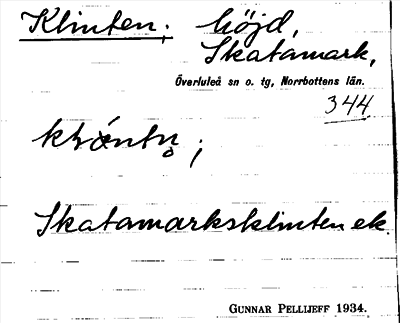 Klinten; höjd,
Skatamark,
Överluleå sn o. tg, Norrbottens län.
344
Skatamarksklinten ek.
GUNNAR PELLIJEFF 1934.